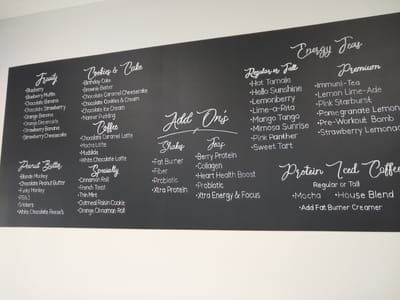 Fruity
•Blueberry
•Blueberry Muffin
•Chocolate Banana
•Chocolate Strawberry
•Orange Banana
•Orange Creamsicle
•Strawberry Banana
•Strawberry Cheesecake
Peanut Butter
•Blonde Monkey
•Chocolate Peanut Butter
•Funky Monkey
•PB&J
•Snickers
•White Chocolate Reese's
Cookies & Cake
•Birthday Cake
•Brownie Batter
•Chocolate Caramel Cheesecake
•Chocolate Cookies & Cream
•Chocolate Ice Cream
•Nanner Pudding
Coffee
•Chocolate Caramel Latte
•Mocha Latte
•Mudslide
•White Chocolate Latte
Specialty
•Cinnamon Roll
•French Toast
•Thin Mint
•Oatmeal Raisin Cookie
•Orange Cinnamon Roll
Add On's
Shakes
•Fat Burner
•Fiber
•Probiotic
•Xtra Protein
Teas
•Berry Protein
•Collagen
•Heart Health Boost
•Probiotic
•Xtra Energy & Focus
Energy Teas
Regular or Tall
•Hot Tamale
•Hello Sunshine
•Lemonberry
•Lime-a-Rita
•Mango Tango
•Mimosa Sunrise
•Pink Panther
•Sweet Tart
Premium
•Immuni-Tea
•Lemon Lime-Ade
•Pink Starburst
•Pomegranate Lemonade
•Pre-Workout Bomb
•Strawberry Lemonade
Protein Iced Coffee
Regular or Tall
•Mocha •House Blend
•Add Fat Burner Creamer